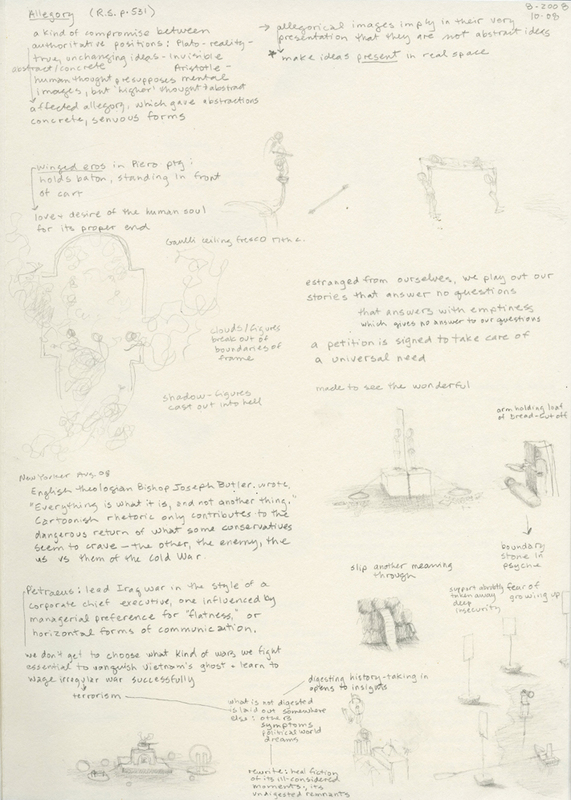 Allegory (R.S. p. 531)
a kind of compromise between
authoritative positions: Plato - reality -
true, unchanging ideas - invisible
abstract/concrete Aristotle -
human thought presupposes mental
images, but 'higher' thought = abstract
affected allegory, which gave abstractions
concrete, senuous forms
→ allegorical images imply in their very
presentation that they are not abstract ideas
make ideas present in real space
8-2008
10-08
winged eros in Piero ptg:
holds baton, standing in front
of cart
love = desire of the human soul
for its proper end
Gaulli ceiling fresco
clouds/figures
break out of
boundaries of
frame
shadow-figures
cast out into hell
estranged from ourselves, we play out our
stories that answer no questions
that answers with emptiness
which gives no answer to our questions
a petition is signed to take care of
a universal need
made to see the wonderful
arm holding loaf
of bread - cut off
boundary
stone in
psyche
New Yorker Aug. 08
English theologian Bishop Joseph Butler, wrote,
"Everything is what it is, and not another thing."
Cartoonish rhetoric only contributes to the
dangerous return of what some conservatives
seem to crave — the other, the enemy, the
us vs them of the Cold War.
Petraeus: lead Iraq war in the style of a
corporate chief executive, one influenced by
managerial preference for "flatness," or
horizontal forms of communication.
we don't get to choose what kind of wars we fight
essential to vanquish Vietnam's ghost + learn to
wage irregular war successfully
terrorism
slip another meaning
through
support abruptly
taken away
deep
insecurity
fear of
growing up
digesting history - taking in
opens to insights
what is not digested
is laid out somewhere
else: others
symptoms
political world
dreams
rewrite: heal fiction
of its ill-considered
moments, its
undigested remnants